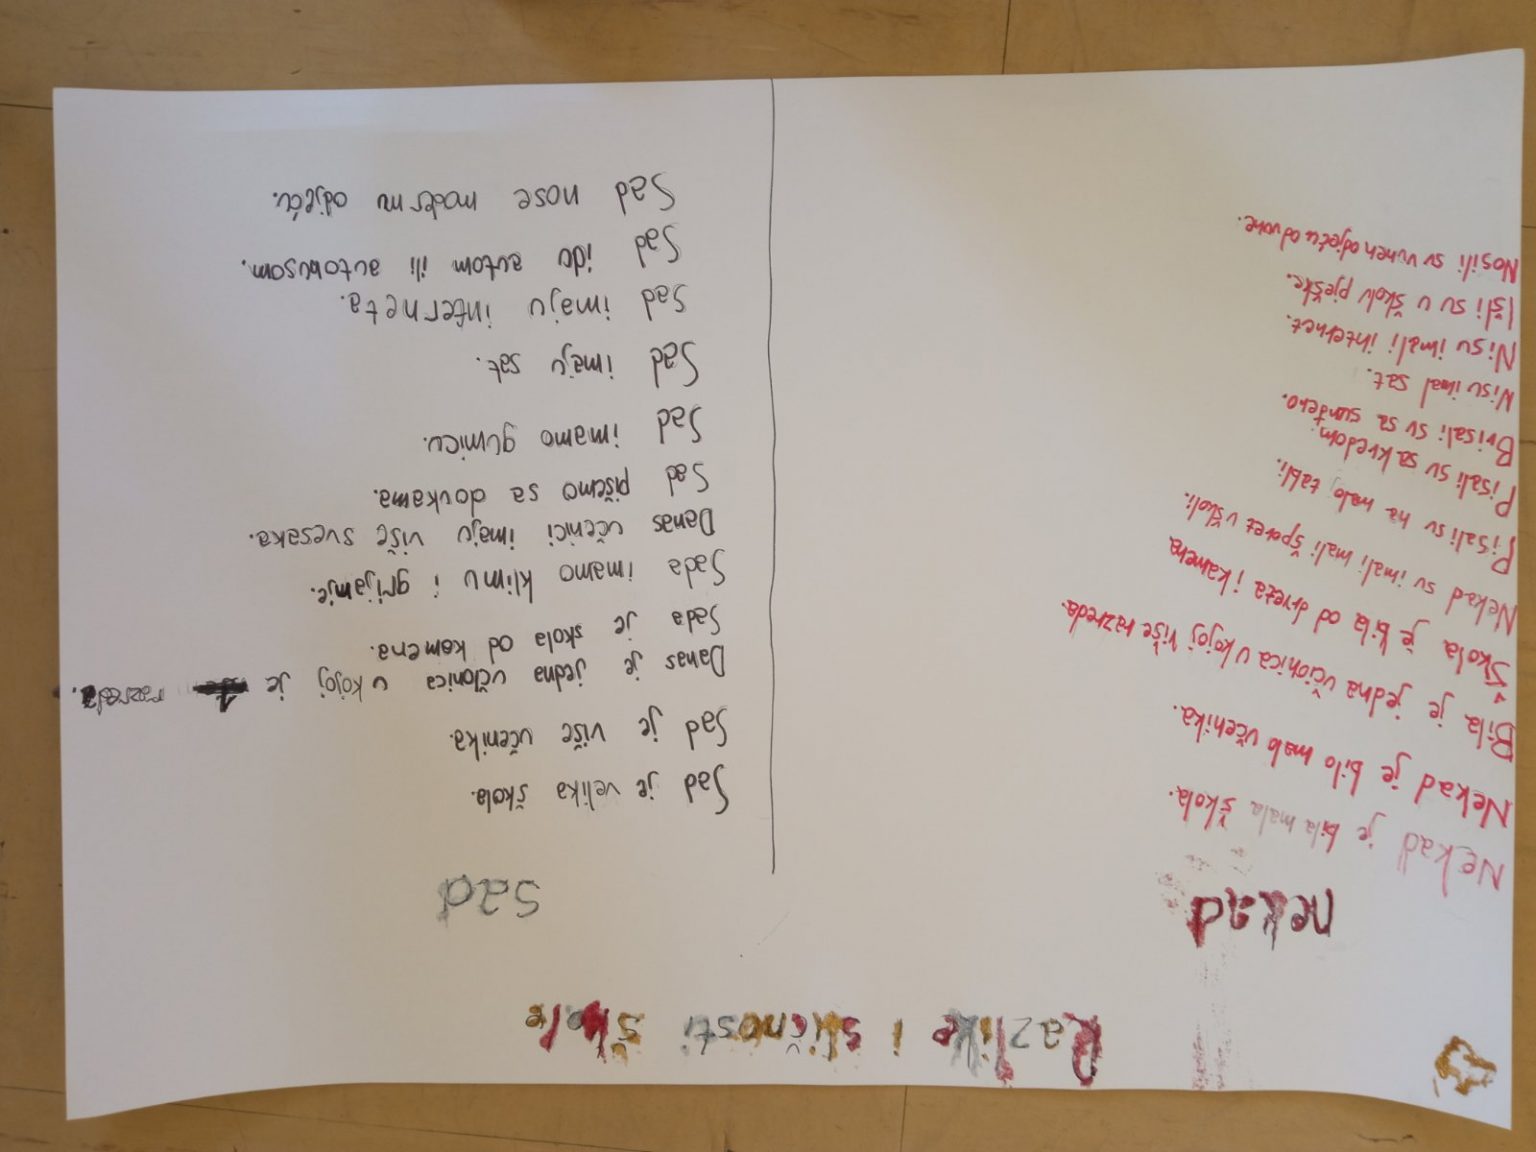 Razlike i sličnosti škole
nekad
Nekad je bila mala škola.
Nekad je bilo malo učenika.
Bila je jedna učionica u kojoj više razreda.
Škola je bila od drveza i kamena
Nekad su imali mali šporet u školi.
Pisali su na maloj tabli.
Pisali su sa kredom.
Brisali su sa sunđero.
Nisu imal sat.
Nisu imali internet.
Išli su u školu pješke.
Nosili su vuneh odjeću od vune.
sad
Sad je velika škola.
Sad je više učenika.
Danas je jedna učionica u kojoj je 1 razreda.
Sada je skola od kamena.
Sada imamo klimu i grijanje.
Danas učenici imaju više svesaka.
Sad pišemo sa olovkama.
Sad imamo gumicu.
Sad imaju sat.
Sad imaju interneta.
Sad idu autom ili autobusom.
Sad nose modernu odjeću.